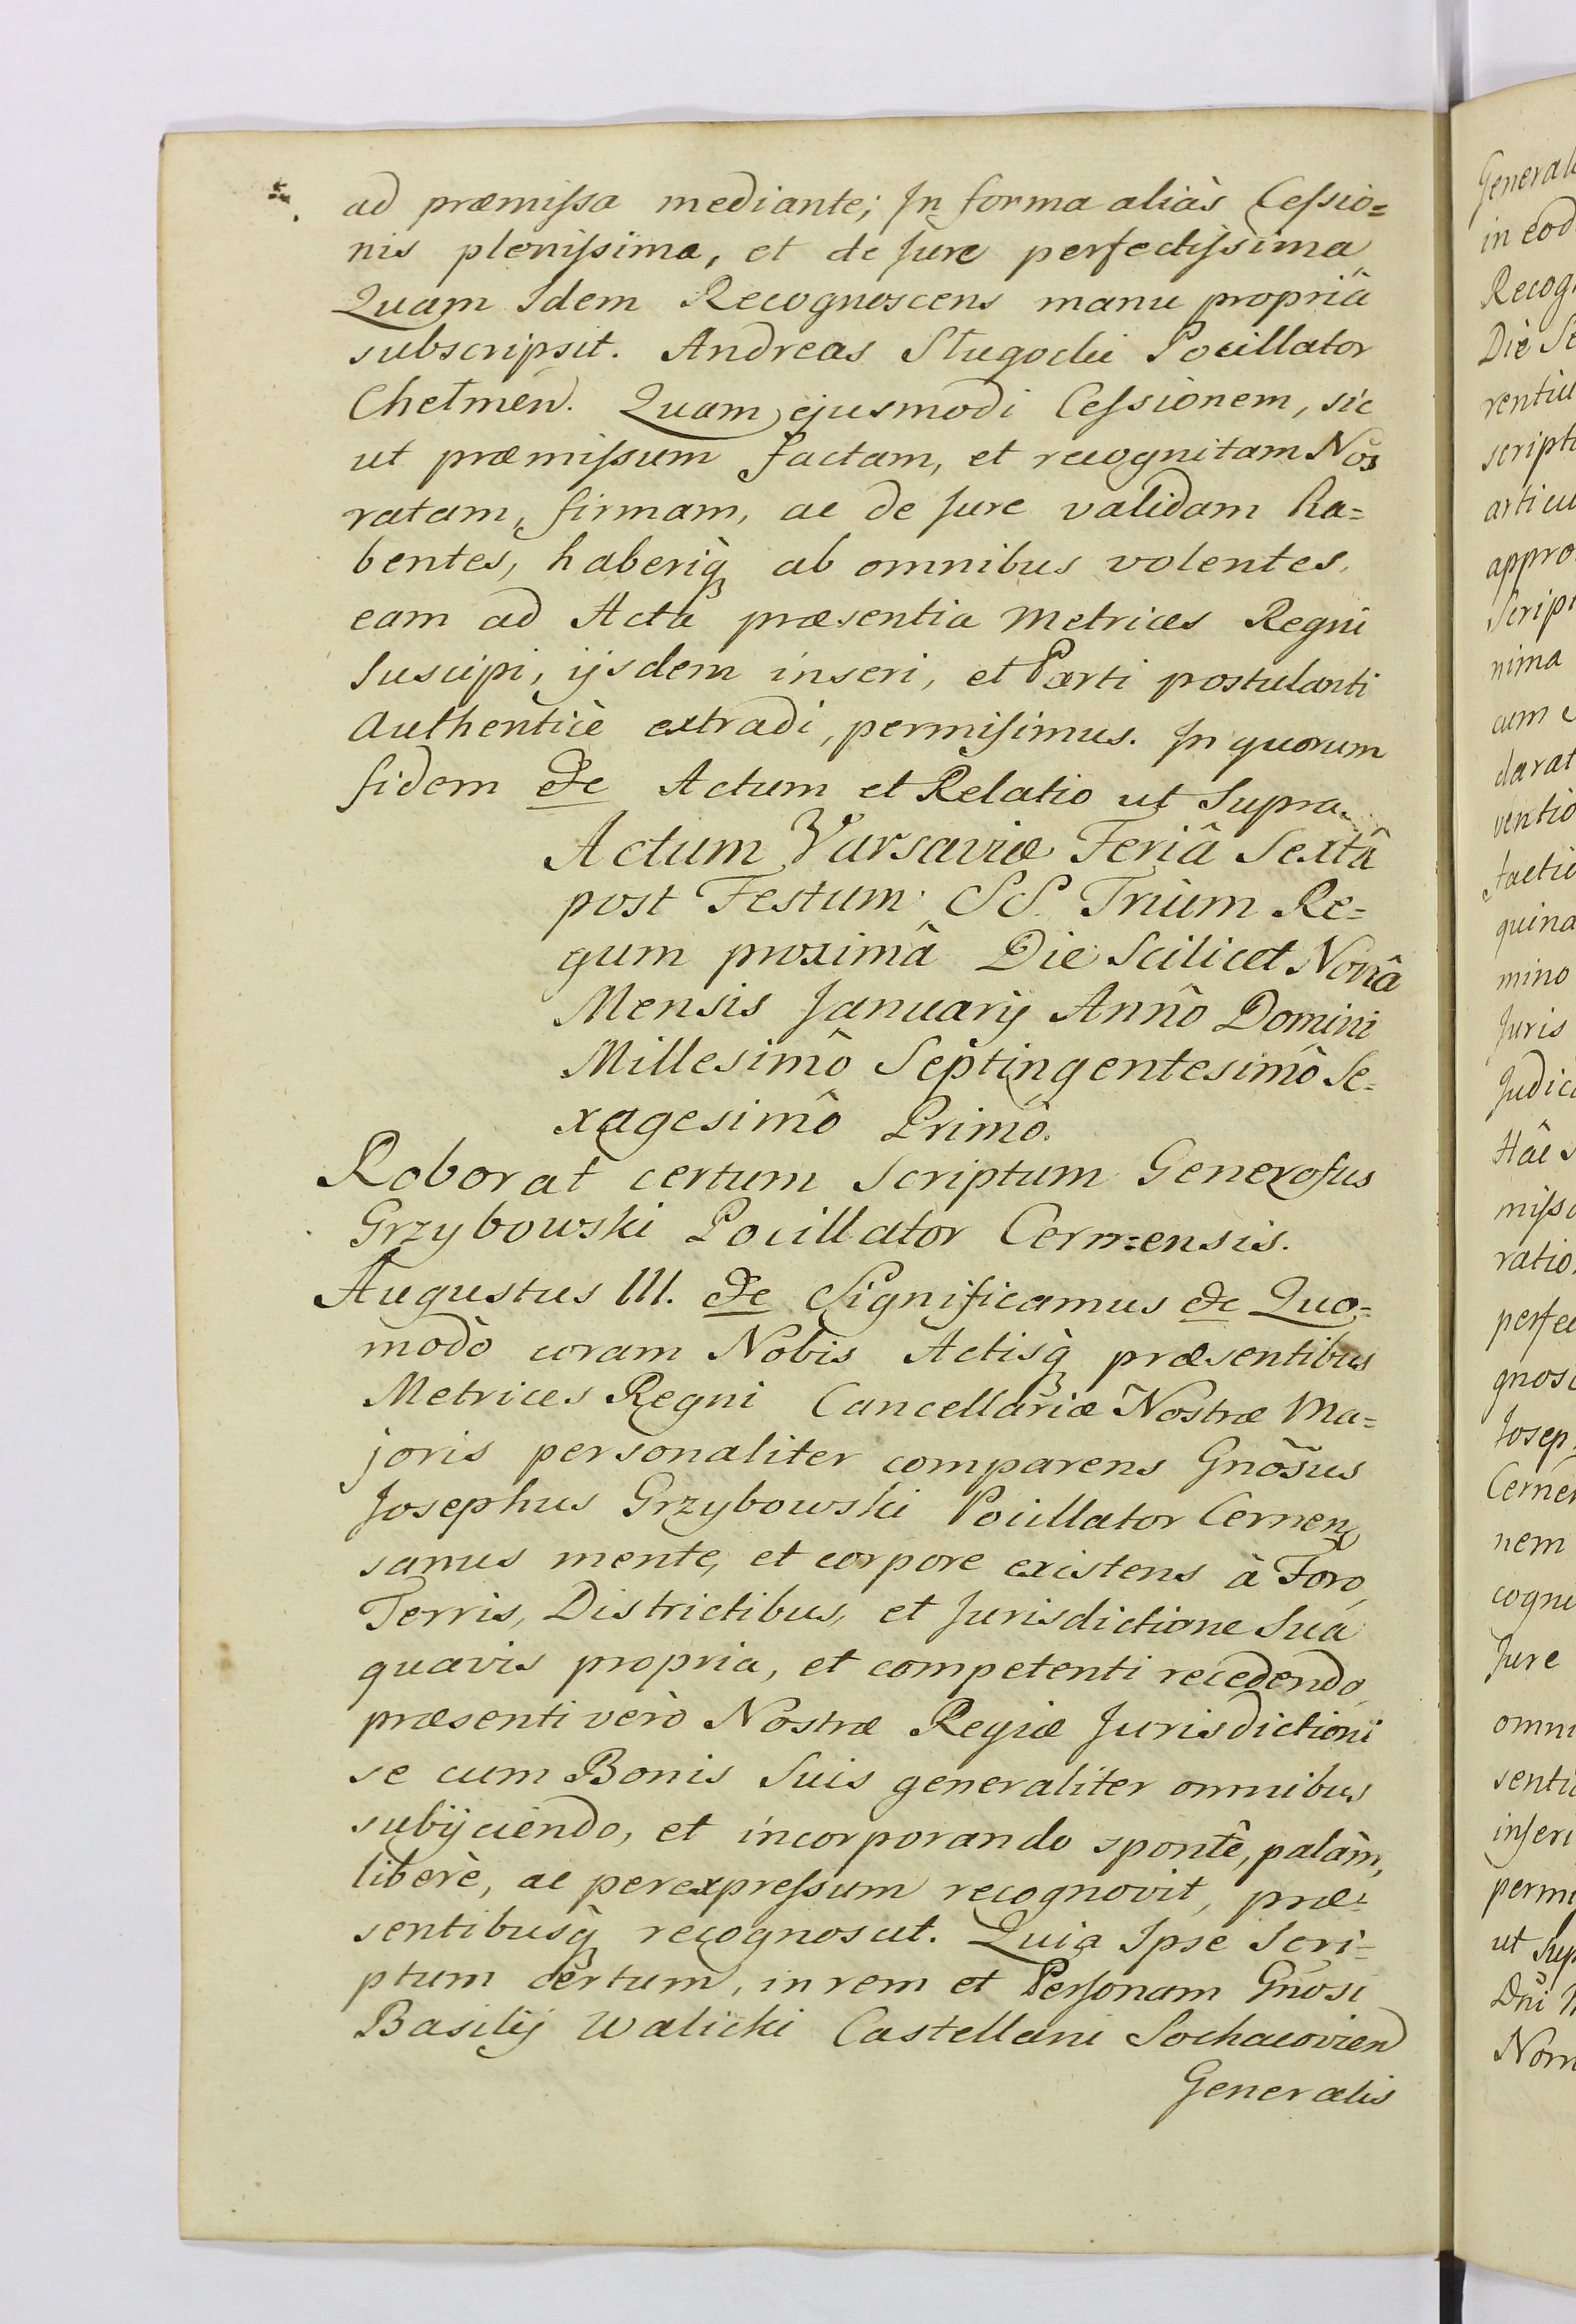 ad præmiſsa mediante; In forma aliàs Ceſsio=
nis pleniſsima, et de Jure perfectiſsima
Quam Idem Recognoscens manu propriâ
subscripsit. Andreas Sługocki Pocillator
Chełmeń. Quam ejusmodi Ceſsionem, sic
ut præmiſsum factam, et recognitam Nos
ratam, firmam, ac de Jure validam ha=
bentes, haberiq̀ ab omnibus volentes,
eam ad Acta præsentia Metrices Regni
Suscipi, ijsdem inseri, et Parti postulanti
Authenticè extradi, permisimus. In quorum
fidem &c Actum et Relatio ut Supra.
Actum Varsaviæ Feriâ Sextâ
post Festum SS. Trium Re=
gum proximâ Die Scilicet Nonâ
Mensis Januarij Annô Domini
Millesimô Septingentesimô Se=
xagesimô Primô.
Roborat certum Scriptum Generosus
Grzybowski Pocillator Cernensis.
Augustus III. &c Significamus &c Quo=
modò coram Nobis Actisq̀ præsentibus
Metrices Regni Cancellariæ Nostræ Ma=
joris personaliter comparens Gnõsus
Josephus Grzybowski Pocillator Cernen
sanus mente, et corpore existens à Foro,
Terris, Districtibus, et Jurisdictione Suâ
quavis propria, et competenti recedendo,
præsenti verò Nostræ Regiæ Jurisdictioni
se cum Bonis Suis generaliter omnibus
subijciendo, et incorporando spontê, palàm,
liberè, ac per expreſsum recognovit, præ=
sentibusq̀ recognoscit. Quia Ipse Scri=
ptum certum, in rem et Personam Gnosi
Basilij Walicki Castellani Sochaczovien
Generalis
Generali
in eod
Recog
Die S
rentiu
script
articu
appro
Scrip
nima
cum
darat
ventio
factio
quina
mino
Juris
Judici
Hâc
miſsa
ratio
perfec
gnosc
Josep
Cernen
nem
cogni
Jure
omni
senti
inseri
permi
ut Sup
Dñi
Nom